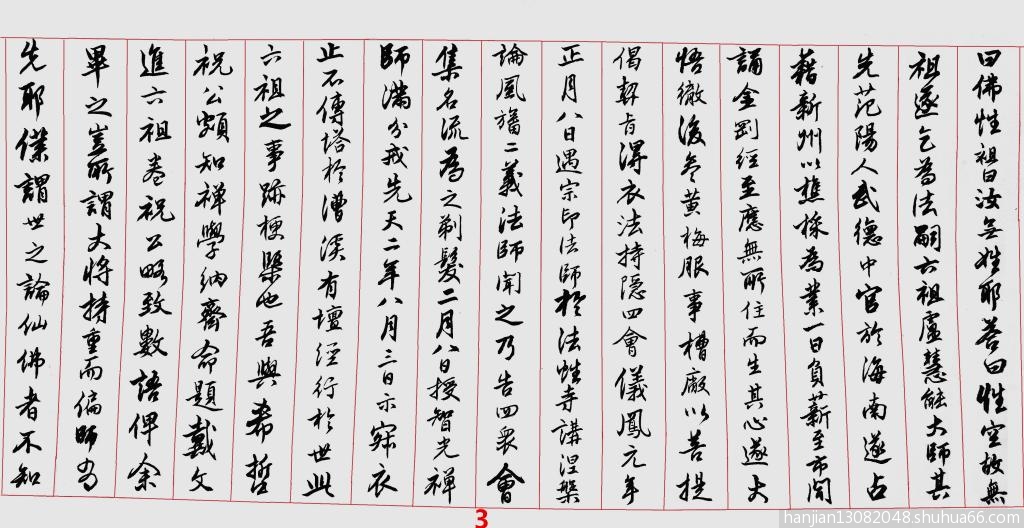 曰佛性祖曰汝無姓耶答曰性空故無
祖遂乞為法嗣六祖盧慧能大師其
先范陽人武德中官於海南遂占
籍新州以樵採為業一日負薪至市聞
誦金剛經至應無所住而生其心遂大
悟徹後參黃梅服事槽廠以菩提
偈契旨得衣法持隱四會儀鳳元年
正月八日遇宗印法師於法性寺講涅槃
論風旛二義法師聞之乃告四衆會
集名流為之剃髮二月八日授智光禪
師滿分戒先天二年八月三日示寂衣
止不傳塔於漕溪有壇經行於世此
六祖之事跡梗槩也吾與希哲
祝公頗知禪學納齋命題戴文
進六祖卷祝公略致數語俾余
畢之豈所謂大將持重而偏師為
先耶僕謂世之論仙佛者不知
3
hanjian13082048.shuhua66.com